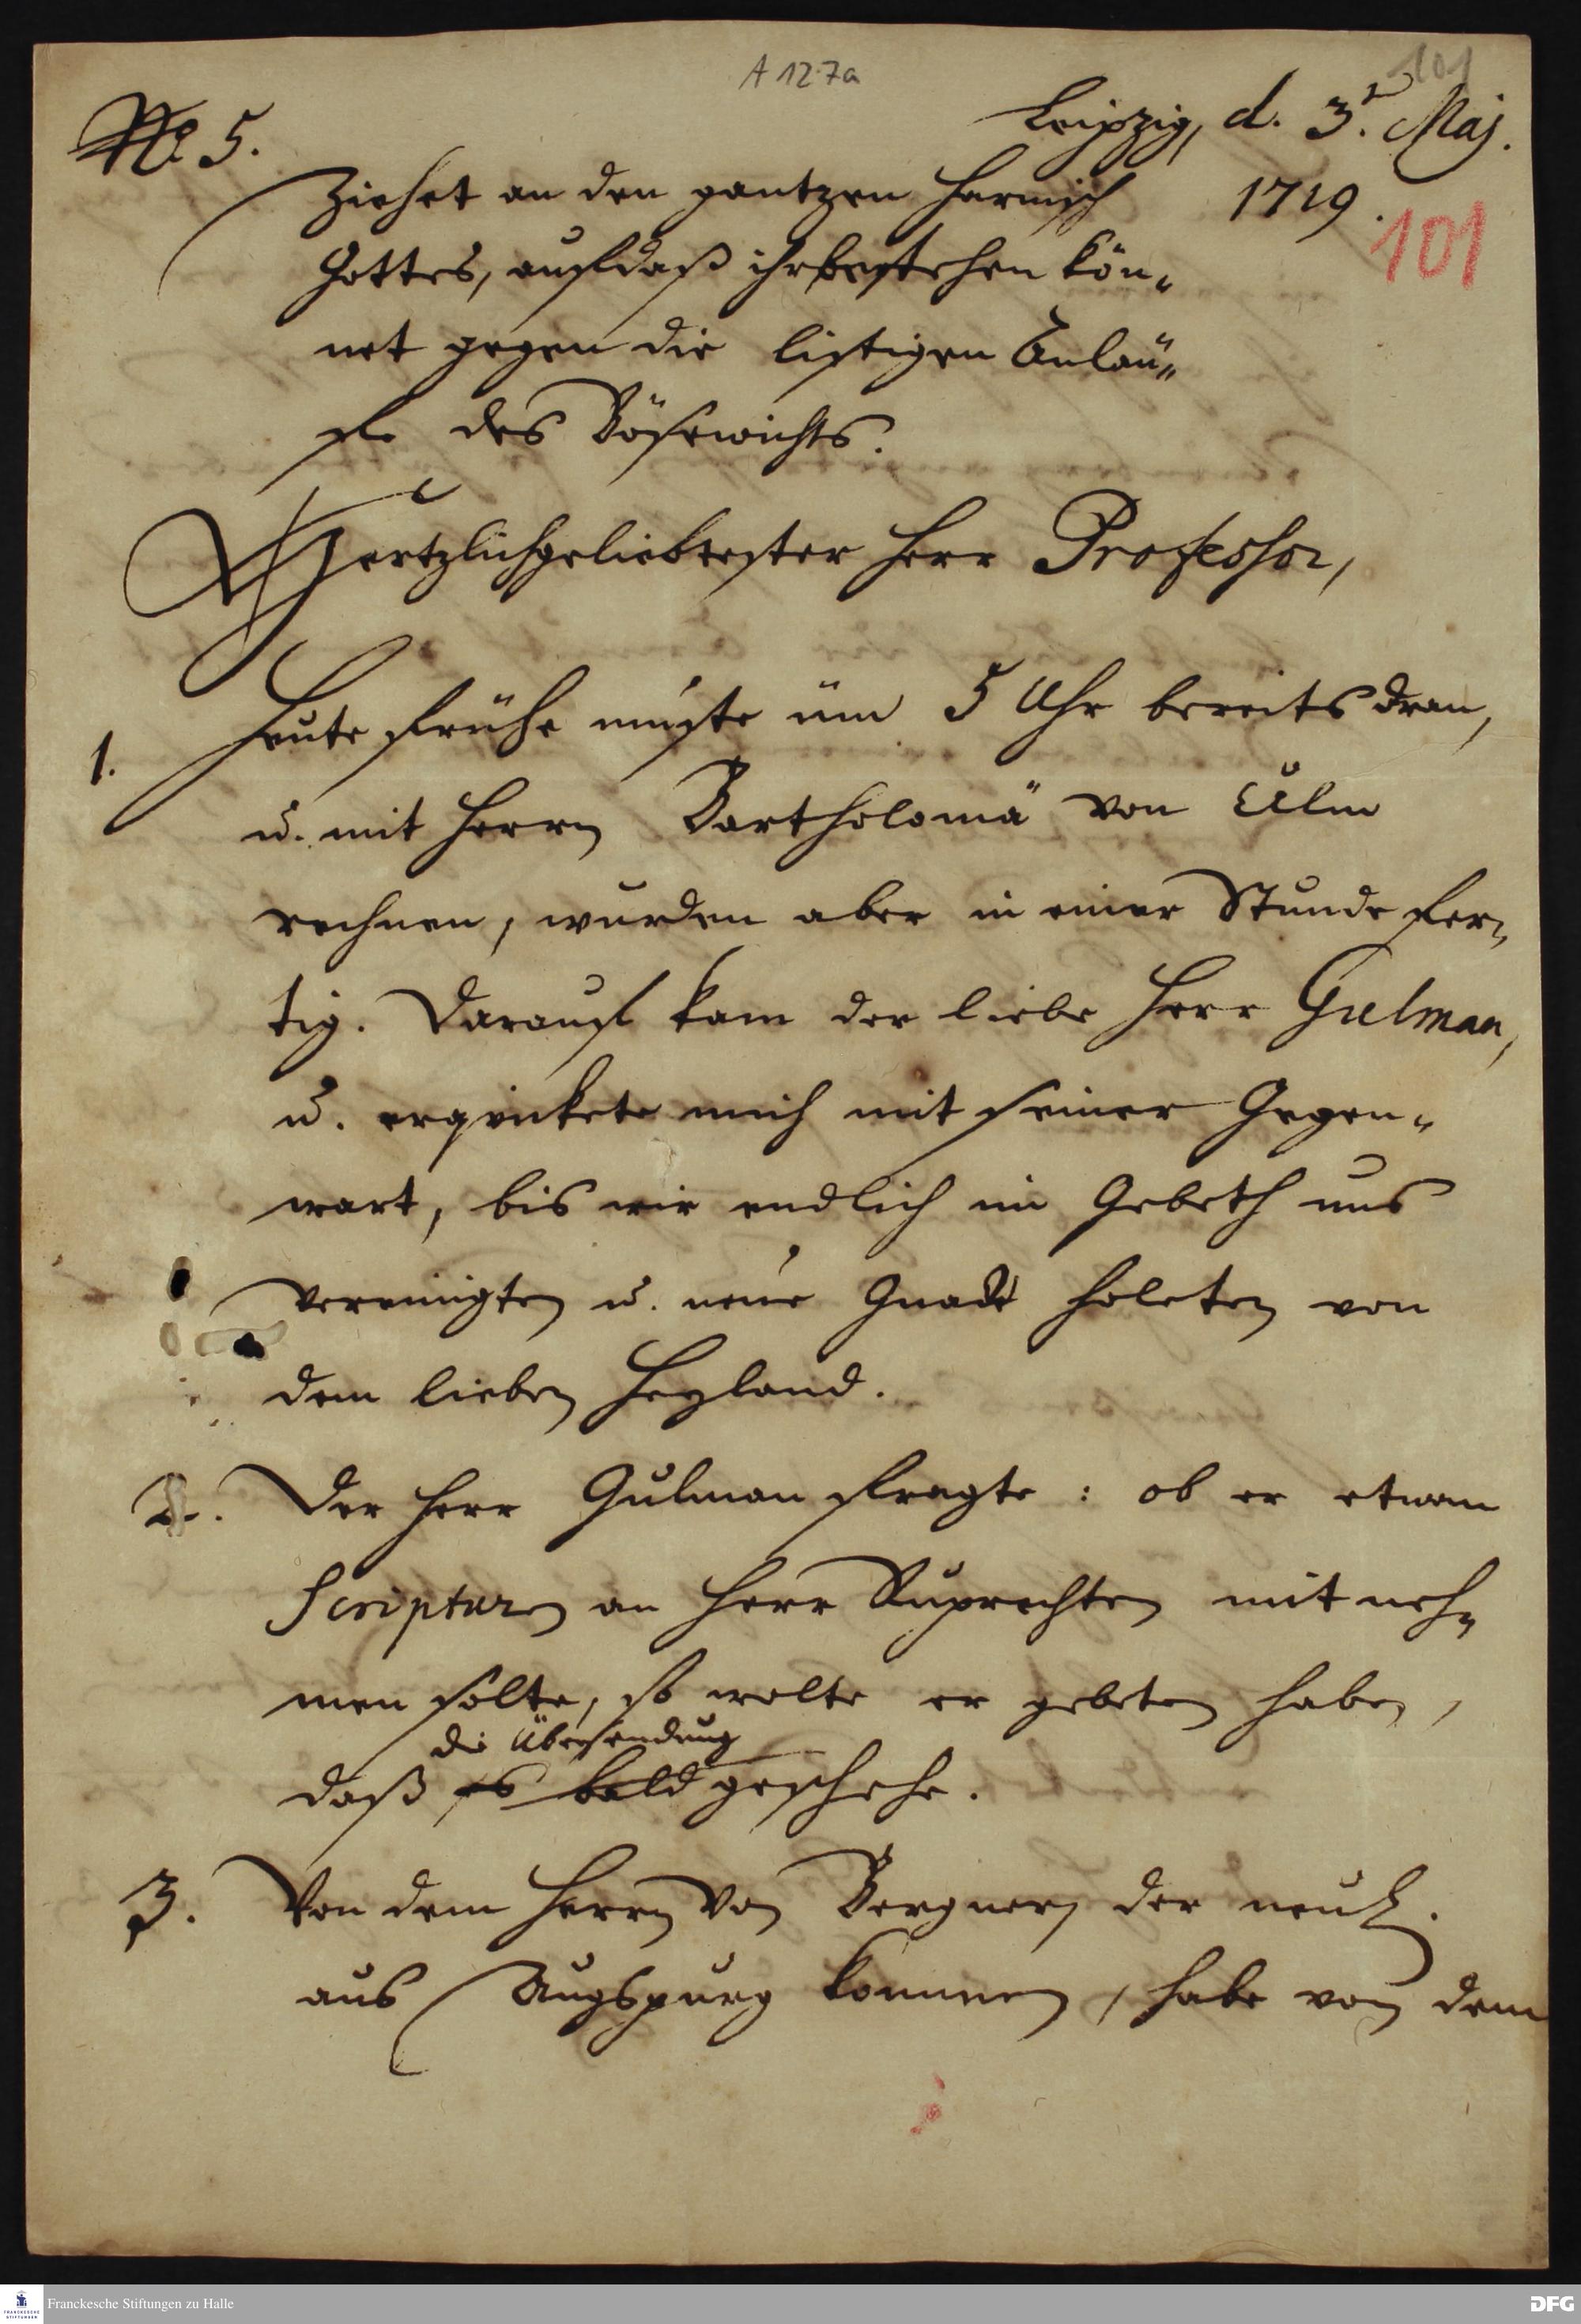 A 12:7a
101
No 5.
Leipzig, d. 3. Maj.
1719.
101
Ziehet an den gantzen Harnisch
Gottes, auf daß ihr bestehen kön-
net gegen die listigen Anläu-
fe des Bösewichts.
Hertzlichgeliebtester Herr Professor,
1. Heute frühe muste üm 5 Uhr bereits dran,
u. mit Herrn Bartholomä von Ulm
rechnen, wurden aber in einer Stunde fer-
tig. Darauf kam der liebe Herr Gulman,
u. erqvickete mich mit seiner Gegen-
wart, bis wir endlich im Gebeth uns
vereinigten u. neue Gnade holeten von
dem lieben Heyland.
2. Der Herr Gulman fragte: ob er etwan
Scripturen an Herr Ruprechten mit neh-
men solte, so wolte er gebeten haben,
die Übersendung
daß es bald geschehe.
3. Von dem Herrn von Bergner, der neul.
aus Augspurg kommen, habe von dem
Franckesche Stiftungen zu Halle
DFG